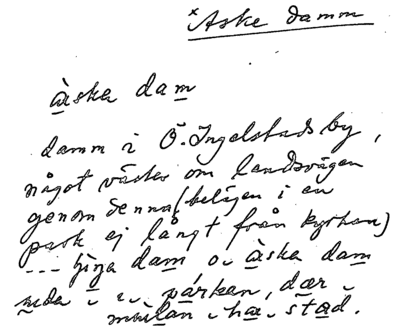 ×Aske damm
àska dam
damm i Ö. Ingelstads by,
något väster om landsvägen
genom denna (belägen i en
park ej långt från kyrkan)
--- dam o àska dam
i parkan, dær
ha stad.